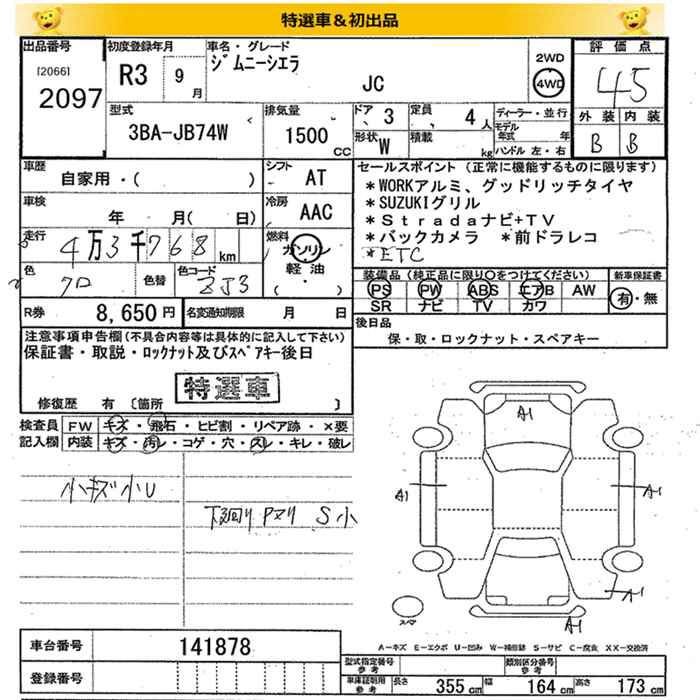 特選車&初出品
出品番号 初度登録年月 車名・グレード 評価点
[2066] 2097 R3 9月 ジムニーシエラ JC 2WD 4WD 45
型式 排気量 ドア 3 定員 4人 ディーラー・並行 外装 内装
3BA-JB74W 1500cc 形状 W 積載 kg モデル年式 年 ハンドル 左・右 B B
車歴 シフト セールスポイント (正常に機能するものに限ります)
自家用・( ) AT *WORKアルミ、グッドリッチタイヤ
車検 冷房 *SUZUKIグリル
年 月( 日) AAC *Stradaナビ+TV
走行 燃料 *バックカメラ *前ドラレコ
4万3千768km ガソリン *ETC
軽油 装備品 (純正品に限り○をつけてください) 新車保証書
色 色替 色コード ( ) PS PW ABS エアB AW 有・無
クロ ZJ3 SR ナビ TV カワ
R券 8,650円 名変通知期限 月 日 後日品
注意事項申告欄(不具合内容等は具体的に記入して下さい) 保・取・ロックナット・スペアキー
保証書・取説・ロックナット及びスペアキー後日
特選車
修復歴 有 [箇所 ]
検査員 FW キズ・飛石・ヒビ割・リペア跡・×要
記入欄 内装 キズ・汚レ・コゲ・穴・スレ・キレ・破レ
小キズ小U
下回りPヌリ S小
A1
A1
A1
A1
A1
スペア
A-キズ E-エクボ U-凹み W-補修跡 S-サビ C-腐食 XX-交換済
車台番号 141878
型式指定番号 参考 類別区分番号 参考
登録番号 車庫証明用 参考 長さ 355cm 幅 164cm 高さ 173cm